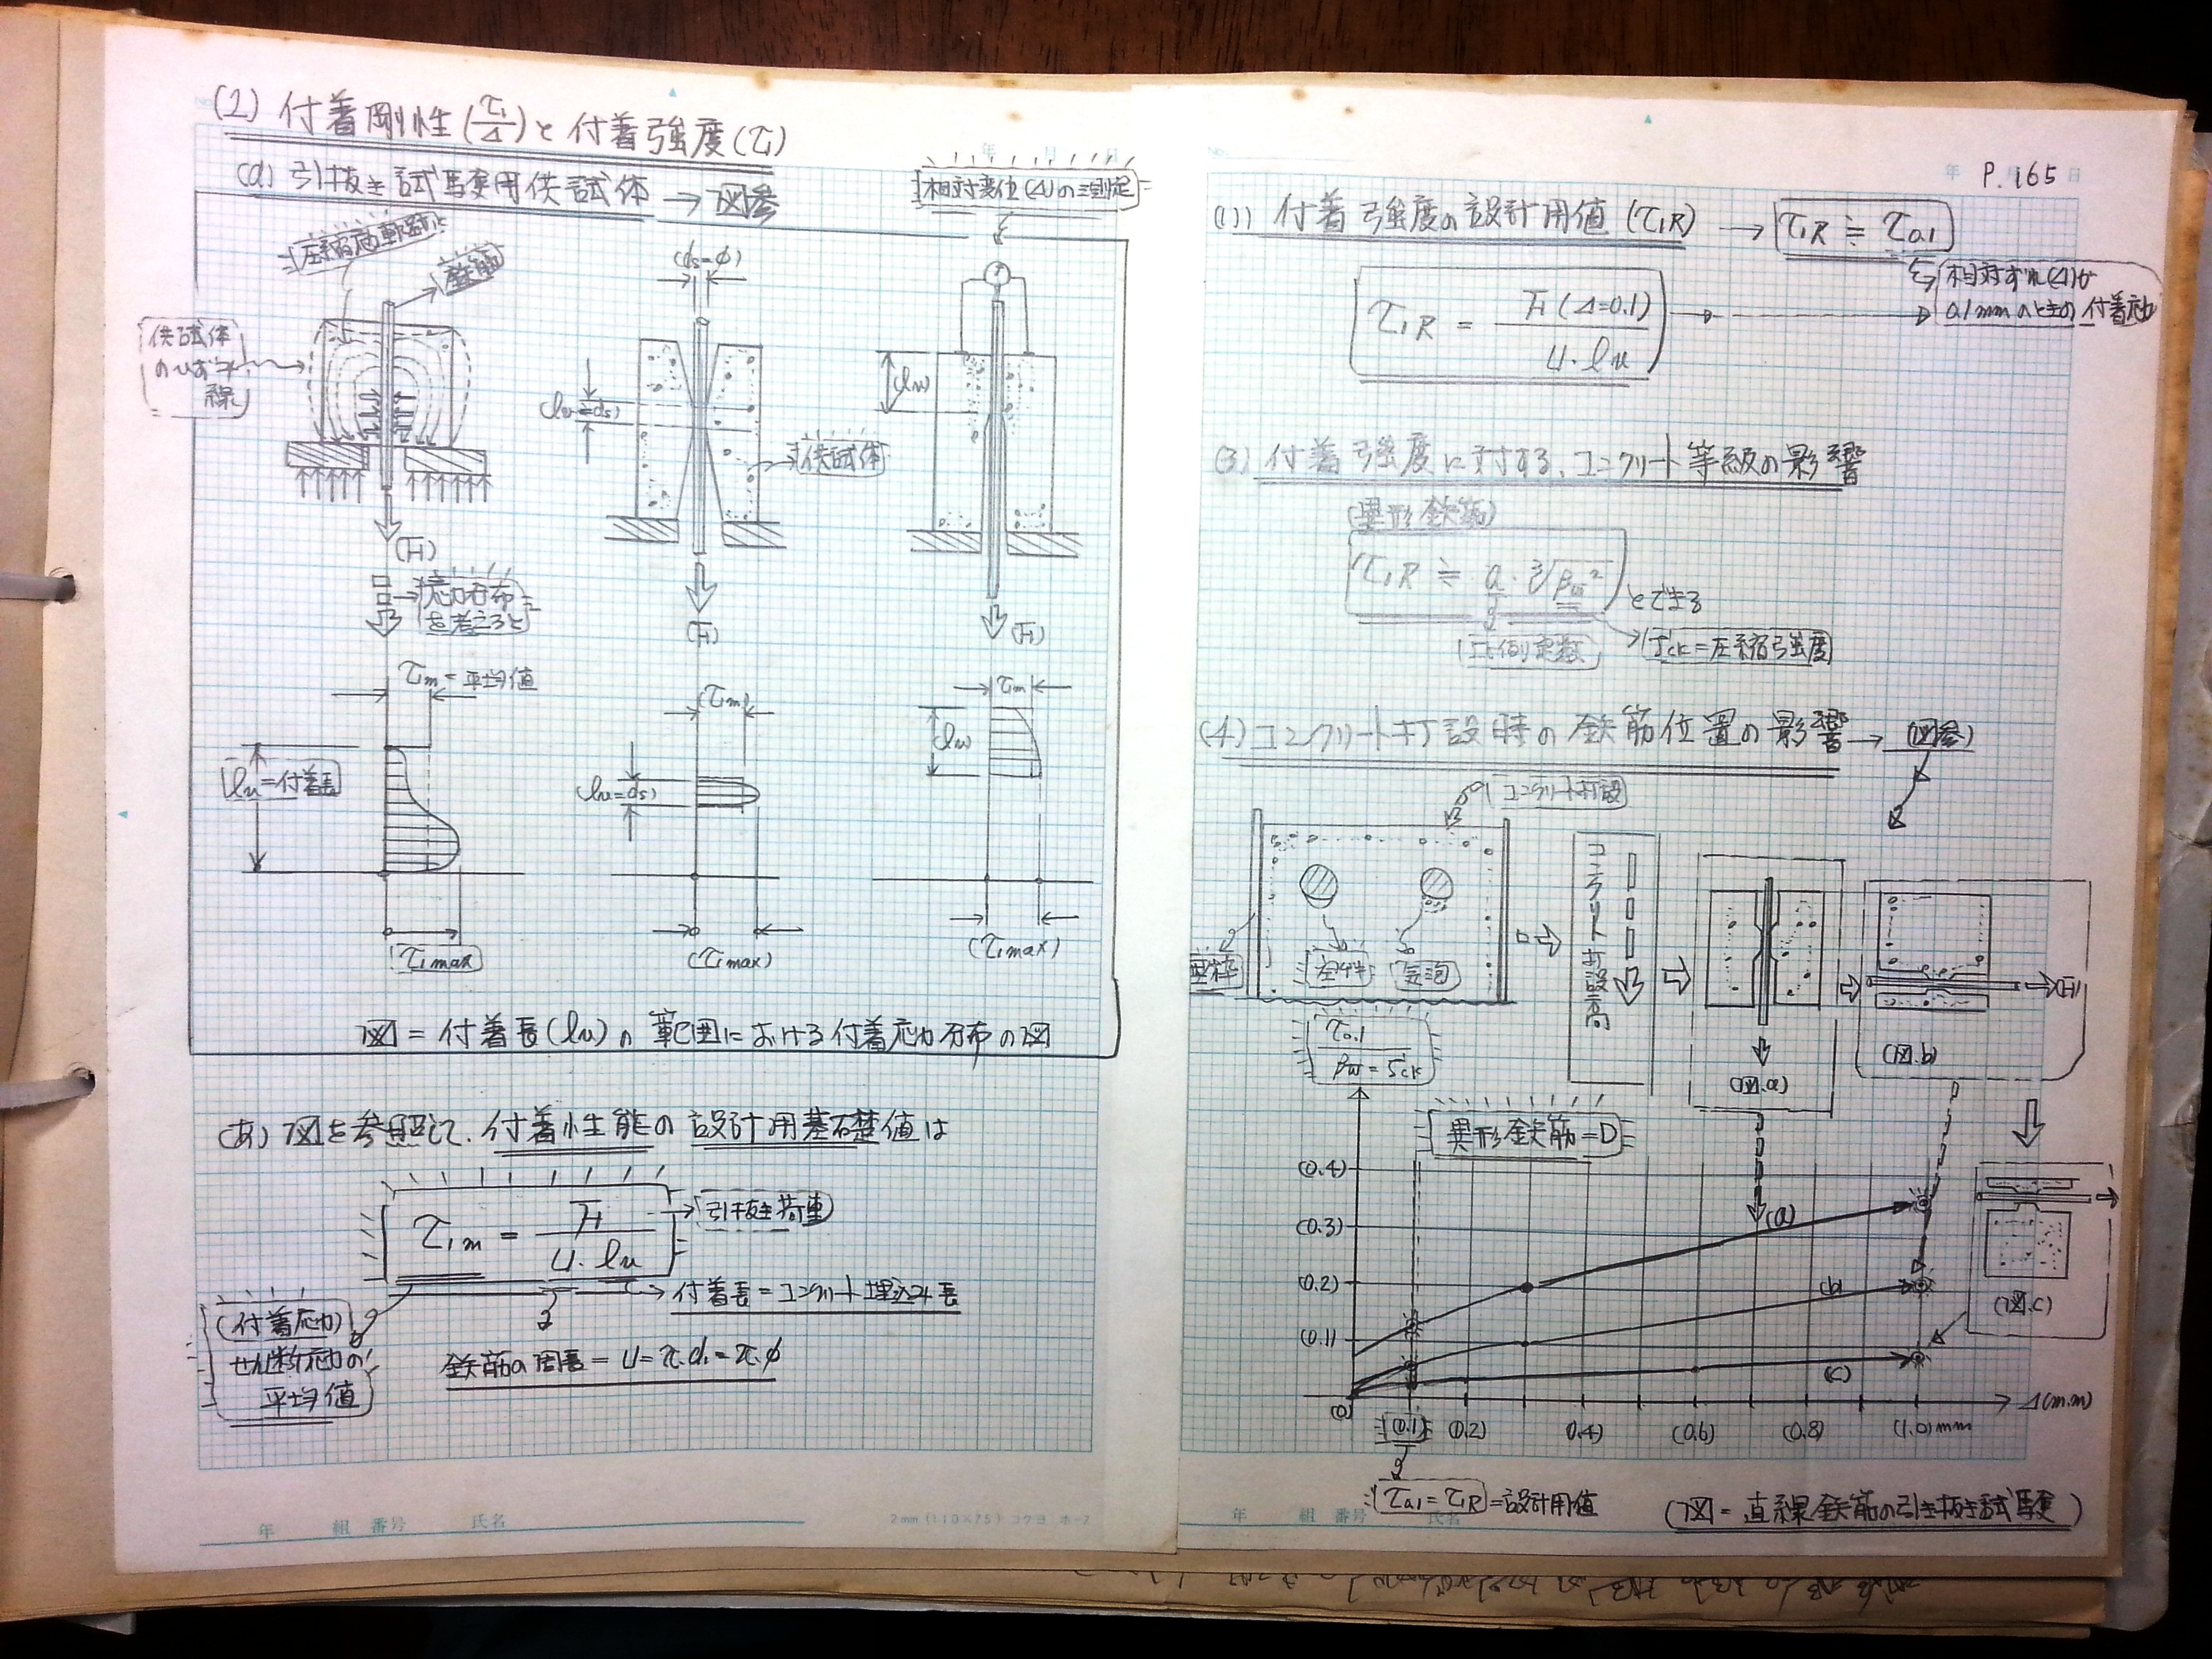 (2) 付着剛性(τ₁/Δ)と付着強度(τ₁)
(a) 引抜き試験用供試体 → 図参
相対変位(Δ)の測定
鉄筋
供試体
のひずみ
線
(ds=φ)
(lv=ds)
(lv)
供試体
(F)
(F)
(F)
応力分布
を考えると
τ₁m=平均値
(τ₁m)
τ₁m
lv=付着長
(lv=ds)
(lv)
τ₁max
(τ₁max)
(τ₁max)
図=付着長(lv)の範囲における付着応力分布の図
(あ) 図を参照して、付着性能の設計用基礎値は
τ₁m = F / U・lv
引抜き荷重
付着長=コンクリート埋込み長
(付着応力)
せん断応力の
平均値
鉄筋の周長=U=π.ds=π.φ
年 組 番号 氏名
2mm (110×75) コクヨ ホ-7
P.165
年 月 日
(1)) 付着強度の設計用値(τ₁R) → τ₁R ≒ τ0.1
相対ずれ(Δ)が
0.1mmのときの付着応力
τ₁R = F(Δ=0.1) / U・lv
(3) 付着強度に対する、コンクリート等級の影響
(異形鉄筋)
τ₁R ≒ a・∛βw² とできる
比例定数
fck=圧縮強度
(4) コンクリート打設時の鉄筋位置の影響 → (図参)
コンクリート打設
型枠
気泡
コンクリート打設高
(図.a)
(図.b)
(F)
(図.c)
τ0.1 / βw=fck
異形鉄筋=D
(0.4)
(0.3)
(0.2)
(0.1)
(0)
(a)
(b)
(c)
(0.1) (0.2) 0.4) (0.6) (0.8) (1.0)mm
Δ(m.m)
τ0.1=τ₁R=設計用値
(図=直線鉄筋の引き抜き試験)
年 組 番号 氏名